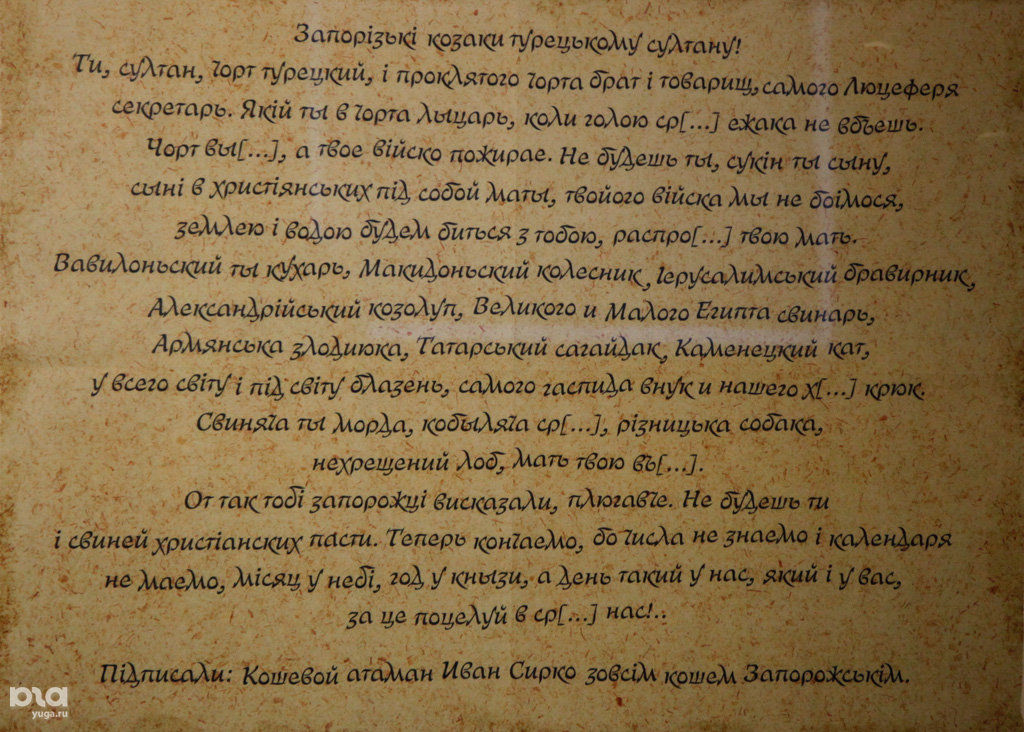 Запорізькі козаки турецькому султану!
Ти, султан, чорт турецкий, і проклятого чорта брат і товарищ, самого Люцеферя
секретарь. Якій ты в чорта лыцарь, коли голою ср[...] ежака не вбъешь.
Чорт вы[...], а твое військо пожирае. Не будешь ты, сукін ты сыну,
сыні в христіянських під собой маты, твойого війска мы не боімося,
землею і водою будем биться з тобою, распро[...] твою мать.
Вавилоньский ты кухарь, Макидоньский колесник, Іерусалимський бравирник,
Александрійський козолуп, Великого и Малого Египта свинарь,
Армянська злодиюка, Татарський сагайдак, Каменецкий кат,
у всего світу і під світу блазень, самого гаспида внук и нашего х[...] крюк.
Свиняча ты морда, кобыляча ср[...], різницька собака,
нехрещений лоб, мать твою въ[...].
От так тобі запорожці висказали, плюгавче. Не будешь ти
і свиней христіанских пасти. Теперь кончаемо, бо числа не знаемо і календаря
не маемо, місяц у небі, год у кнызи, а день такий у нас, який і у вас,
за це поцелуй в ср[...] нас!..
Підписали: Кошевой атаман Иван Сирко зовсім кошем Запорожськім.
yuga.ru